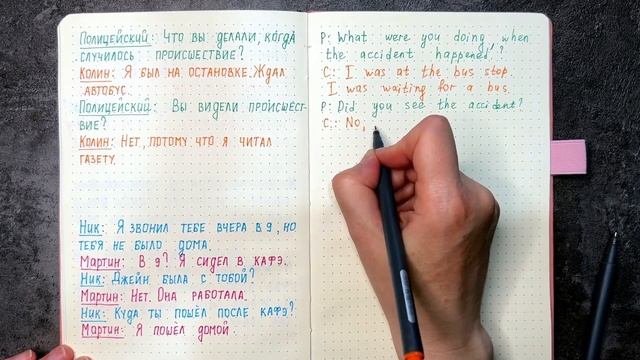 Полицейский: Что вы делали, когда
случилось происшествие?
Колин: Я был на остановке. Ждал
автобус.
Полицейский: Вы видели происшест-
вие?
Колин: Нет, потому что я читал
газету.
Ник: Я звонил тебе вчера в 9, но
тебя не было дома.
Мартин: В 9? Я сидел в кафэ.
Ник: Джейн была с тобой?
Мартин: Нет. Она работала.
Ник: Куда ты пошёл после кафэ?
Мартин: Я пошёл домой.
P: What were you doing when
the accident happened?
C: I was at the bus stop.
I was waiting for a bus.
P: Did you see the accident?
C: No,